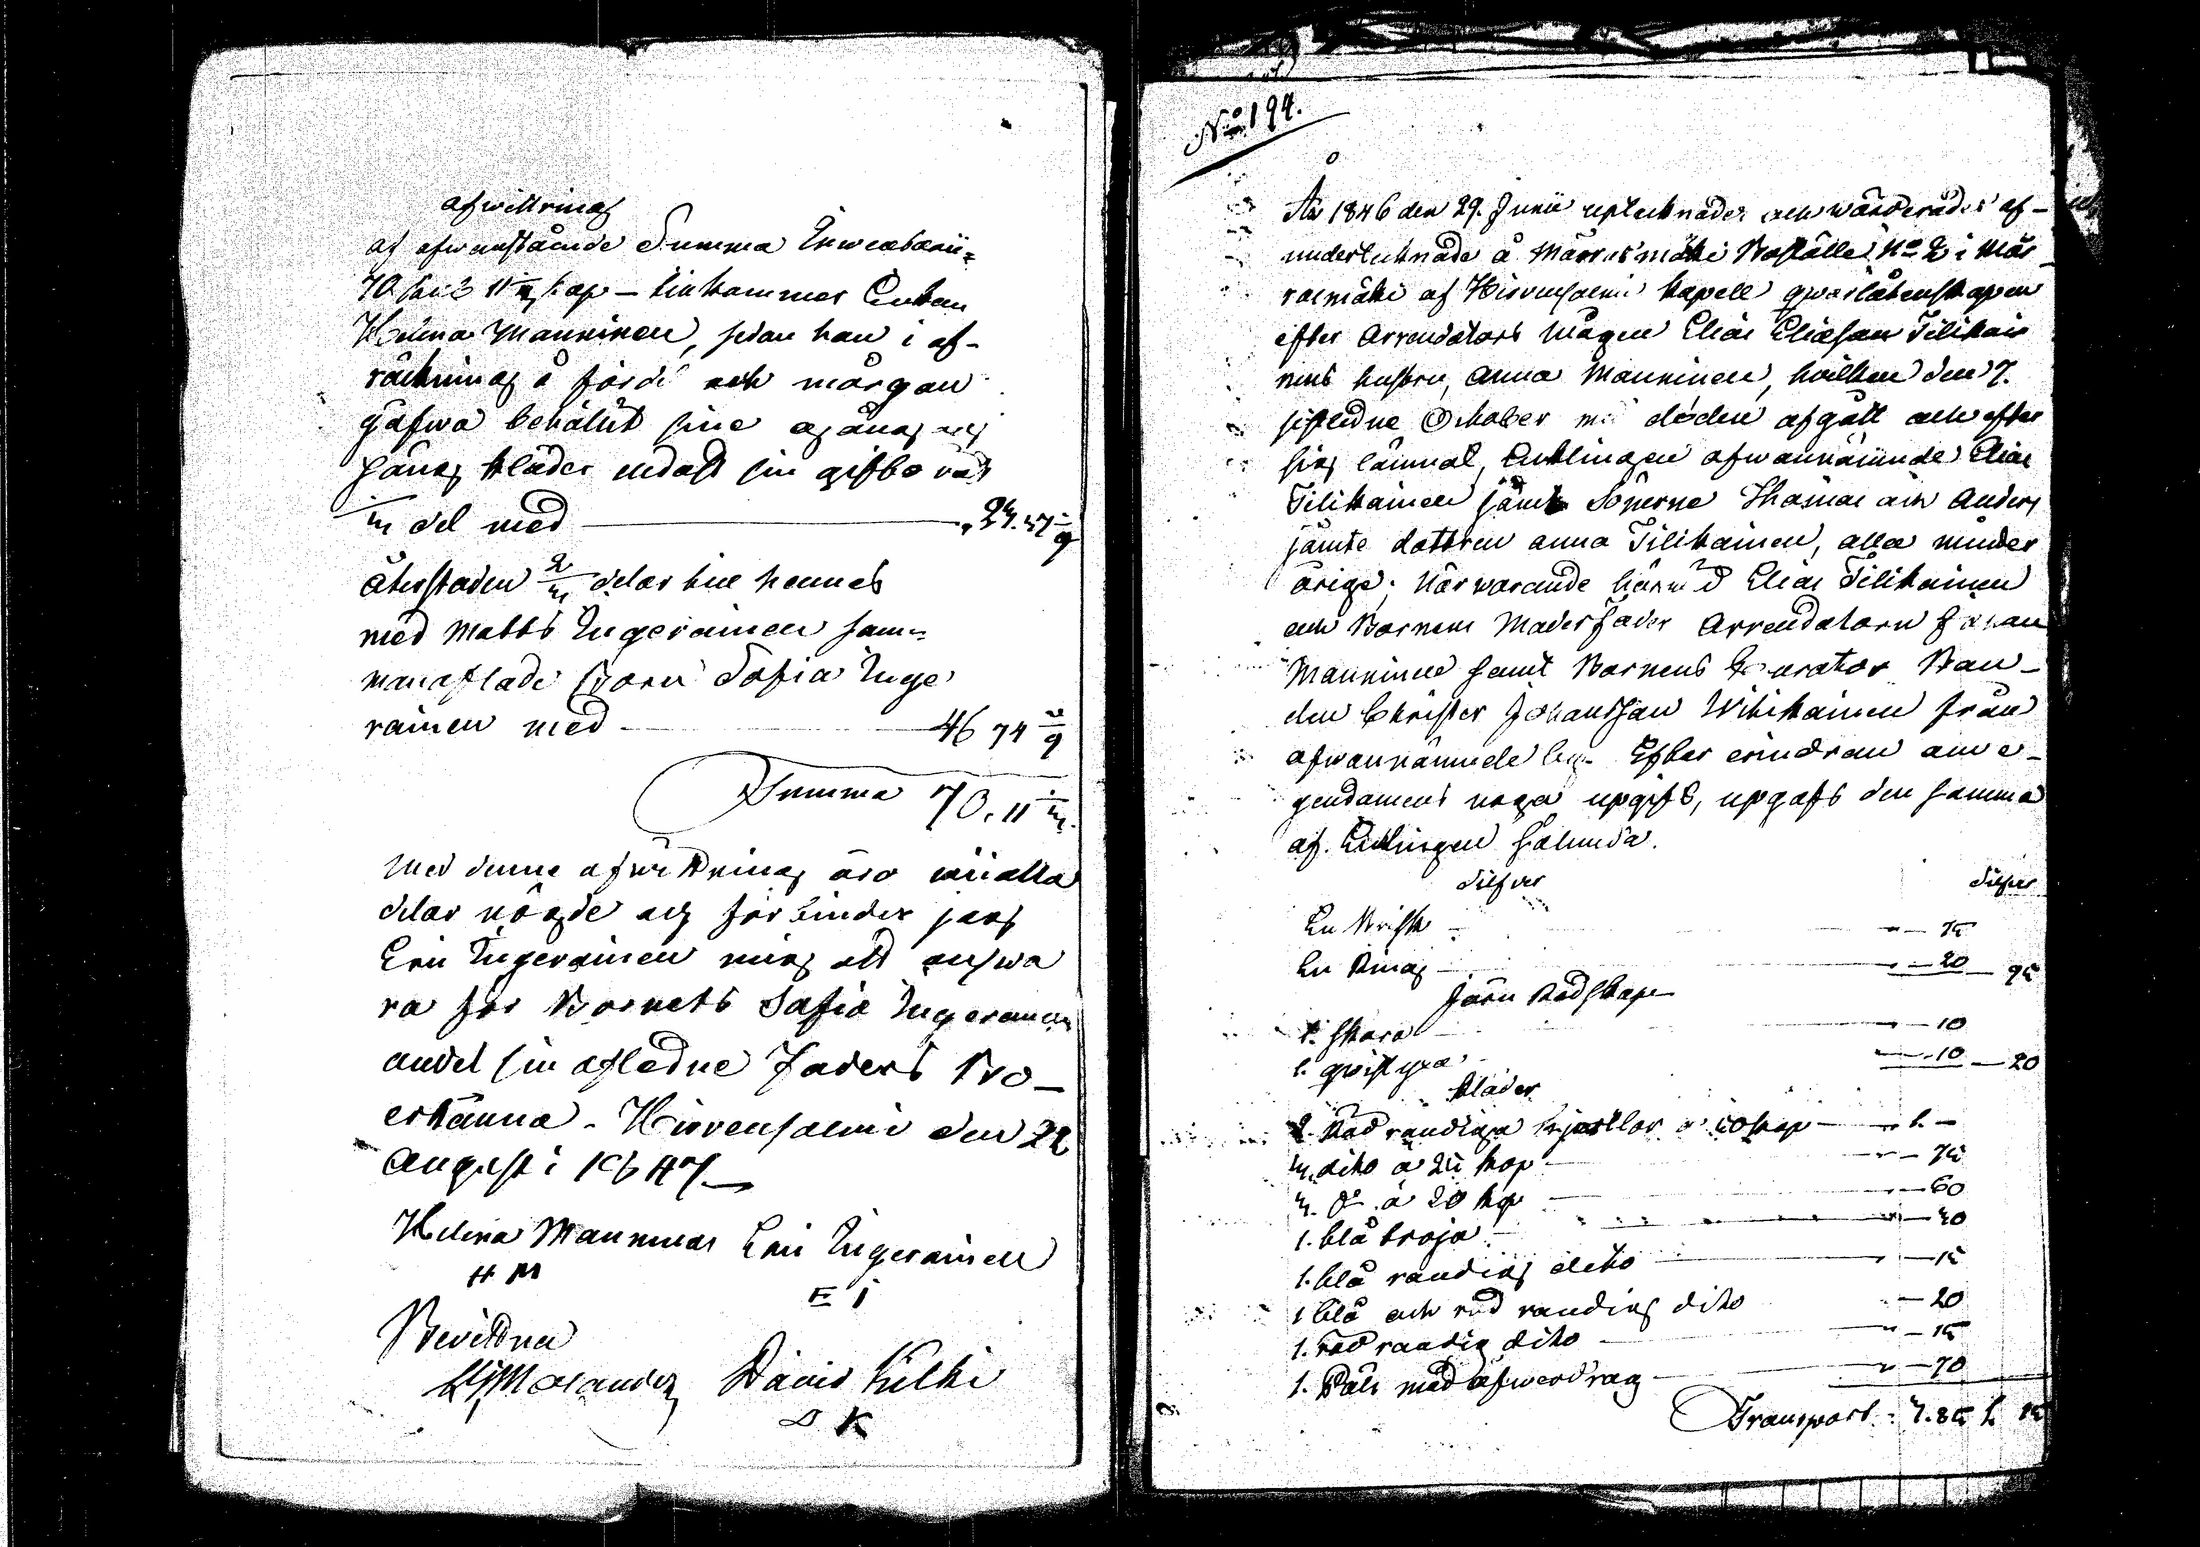 afwittring
af ofwanstående Summa Inwentarii=
70 Rub 11 1/3 kop – tillkommer Enkan
Helena Manninen, sedan han i af-
räkning å fördel och morgon
gåfwa behållit sine gång och
säng kläder endast sin giftorätt
1/3 del med 23.37 1/9
återstoden 2/3 delar till hennes
med Matts Ingerainen sam=
manaflade Barn Sofia Inge
rainen med 46 74 2/9
Summa 70.11 1/3.
Med denne afwittring äro wi i alla
delar nögde och förbinder jag
Eric Ingerainen mig att answa
ra för Barnets Sofia Ingerainen
andel sin afledne Faders Bro-
erkänna. Hirvensalmi den 22
Augusti 1847
Helena Manninen Eric Ingerainen
H M E I
Bevittna
Molander David Kilki
D K
No 194.
År 1846 den 29. Junii uptecknades och wärderades af-
undertecknade å Marrasmäki Boställe No 2 i Mar
rasmäki af Hirvensalmi Kapell qwarlåtenskapen
efter Arrendators mågen Elias Eliasson Tilikai
nens hustru, Anna Manninen, hvilken den 7.
sistledne October med döden afgått och efter
sig lämnat, Enklingen ofwannämnde Elias
Tilikainen jämte Sönerne Thomas och Anders
jämte dottren Anna Tilikainen, alla minder
årige; Närwarande härwid Elias Tilikainen
och Barnens Moderfader Arrendatorn Johan
Manninen samt Barnens Curator Bon-
den Christer Johansson Wikikainen från
ofwannämnde by. Efter erindran om e-
gendomens noga upgift, upgafs den samma
af Enklingen sålunda.
Silfver Silfver
En Brisk " — 75
En Ring " — 20 — 95
Järn Redskap
1. Skara " — 10
1. " — 10 — 20
Kläder
2. Röd randiga Kjortlar a 50 kop " 1. –
3. dito a 25 kop " — 75
3. do a 20 kop " — 60
1. blå tröja " — 40
1. blå randig dito " — 15
1 blå och röd randig dito — 20
1. röd randig dito " — 15
1. Päls med öfwerdrag " — 70
Transport